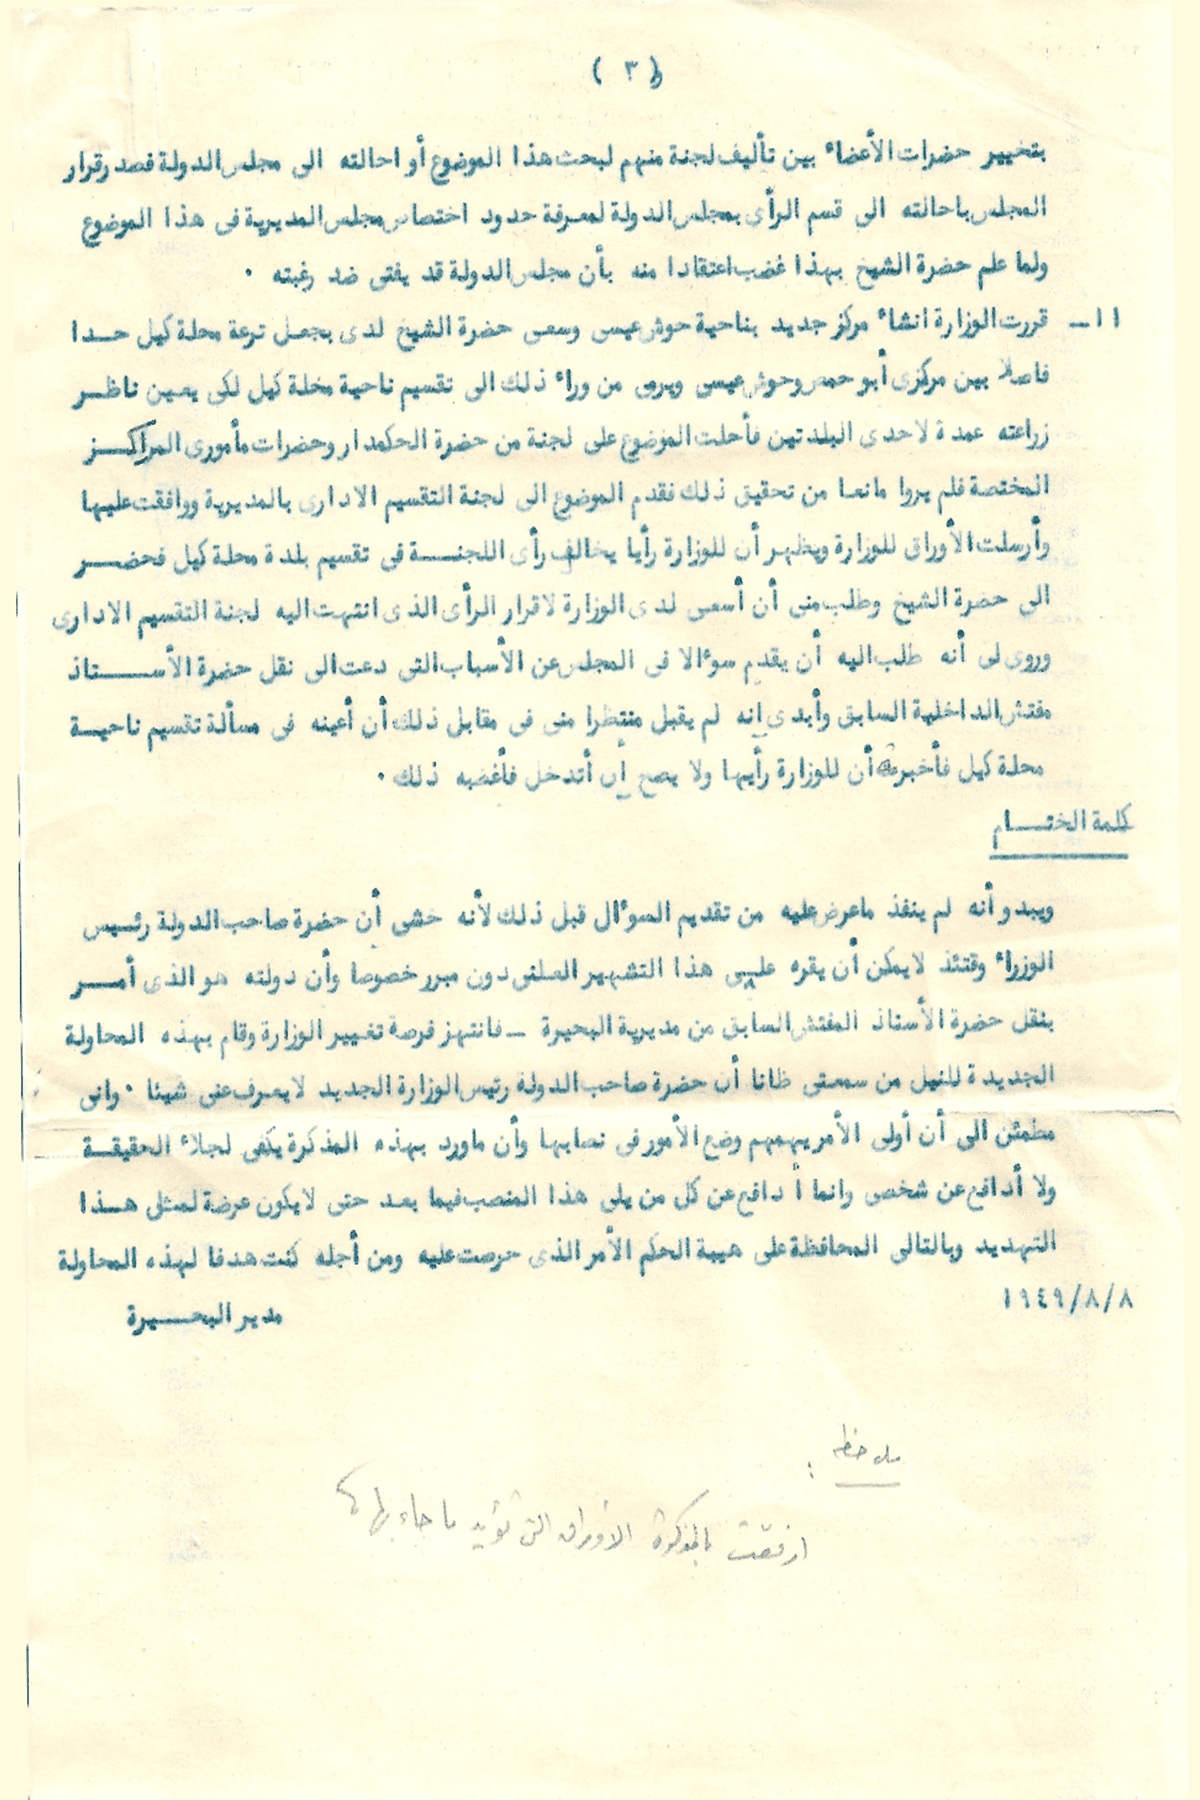 ( ٣ )
بتخيير حضرات الأعضاء بين تأليف لجنة منهم لبحث هذا الموضوع أو احالته الى مجلس الدولة فصدر قرار
المجلس باحالته الى قسم الرأى بمجلس الدولة لمعرفة حدود اختصاص مجلس المديرية فى هذا الموضوع
ولما علم حضرة الشيخ بهذا غضب اعتقادا منه بأن مجلس الدولة قد يفتى ضد رغبته ٠
١١ــ قررت الوزارة انشاء مركز جديد بناحية حوش عيسى وسعى حضرة الشيخ لدى بجعل ترعة محلة كيل حــدا
فاصلا بين مركزى أبو حمص وحوش عيسى ويرمى من وراء ذلك الى تقسيم ناحية محلة كيل لكى يعين ناظر
زراعته عمدة لاحدى البلدتين فأحلت الموضوع على لجنة من حضرة الحكمدار وحضرات مأمورى المراكــز
المختصة فلم يروا مانعا من تحقيق ذلك فقدم الموضوع الى لجنة التقسيم الادارى بالمديرية ووافقت عليها
وأرسلت الأوراق للوزارة ويظهر أن للوزارة رأيا يخالف رأى اللجنــة فى تقسيم بلدة محلة كيل فحضــر
الى حضرة الشيخ وطلب منى أن أسعى لدى الوزارة لاقرار الرأى الذى انتهت اليه لجنة التقسيم الادارى
وروى لى أنه طلب اليه أن يقدم سوءالا فى المجلس عن الأسباب التى دعت الى نقل حضرة الأســتاذ
مفتش الداخلية السابق وأبدى انه لم يقبل منتظرا منى فى مقابل ذلك أن أعينه فى مسألة تقسيم ناحيــة
محلة كيل فأخبرته أن للوزارة رأيها ولا يصح أن أتدخل فأغضبه ذلك ٠
كلمة الختــام
ويبدو أنه لم ينفذ ماعرض عليه من تقديم السوءال قبل ذلك لأنه خشى أن حضرة صاحب الدولة رئيس
الوزراء وقتئذ لايمكن أن يقره على هذا التشهير العلنى دون مبرر خصوصا وأن دولته هو الذى أمــر
بنقل حضرة الأستاذ المفتش السابق من مديرية البحيرة ــ فانتهز فرصة تغيير الوزارة وقام بهذه المحاولة
الجديدة للنيل من سمعتى ظانا أن حضرة صاحب الدولة رئيس الوزارة الجديد لايعرف عنى شيئا ٠ وانى
مطمئن الى أن أولى الأمر يهمهم وضع الأمور فى نصابها وأن ماورد بهذه المذكرة يكفى لجلاء الحقيقــة
ولا أدافع عن شخصى وانما أدافع عن كل من يلى هذا المنصب فيما بعد حتى لايكون عرضة لمثل هــذا
التهديد وبالتالى المحافظة على هيبة الحكم الأمر الذى حرصت عليه ومن أجله كنت هدفا لهذه المحاولة
١٩٤٩/٨/٨
مدير البحــيرة
ملاحظه :
ارفقت بالمذكرة الأوراق التى تؤيد ما جاء بها